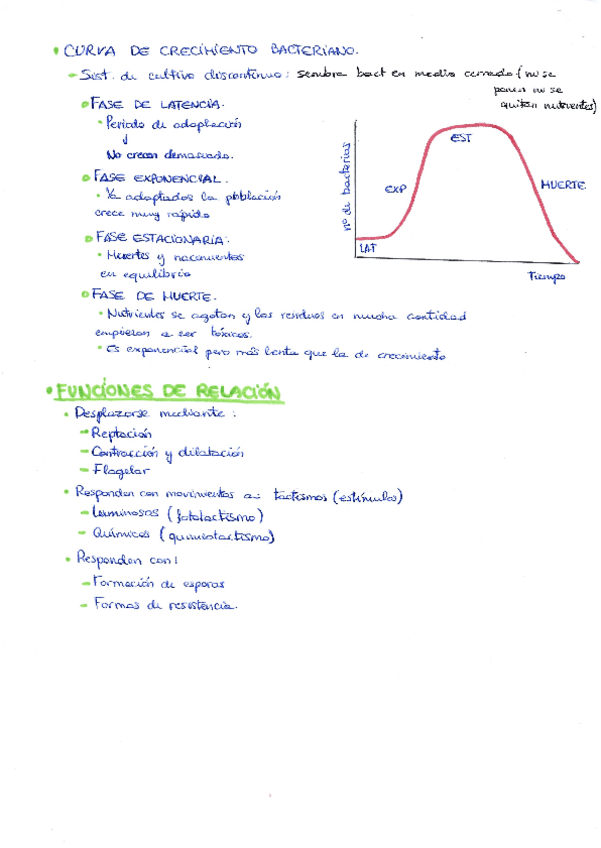 CURVA DE CRECIMIENTO BACTERIANO.
- Sist. de cultivo discontinuo: siembra bact en medio cerrado (ni se
ponen ni se
quitan nutrientes)
FASE DE LATENCIA.
• Periodo de adaptación
↓
No crecen demasiado.
FASE EXPONENCIAL.
• Ya adaptados la población
crece muy rápido
FASE ESTACIONARIA:
• Muertes y nacimientos
en equilibrio
FASE DE MUERTE.
• Nutrientes se agotan y los residuos en mucha cantidad
empiezan a ser tóxicos.
• Es exponencial pero más lenta que la de crecimiento
nº de bacterias
LAT
EXP
EST
MUERTE
Tiempo
• FUNCIONES DE RELACIÓN
• Desplazarse mediante:
- Reptación
- Contracción y dilatación
- Flagelar
• Responden con movimientos a: tactismos (estímulos)
- Luminosos (fototactismo)
- Químicos (quimiotactismo)
• Responden con:
- Formación de esporas
- Formas de resistencia.